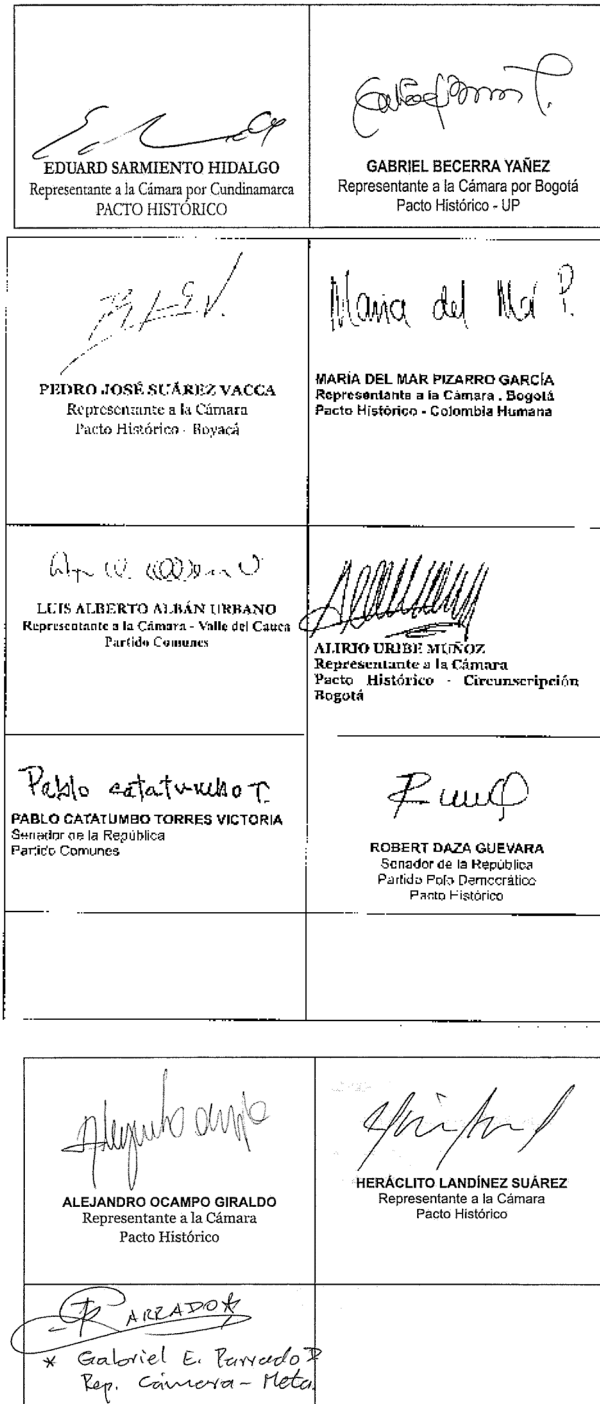 EDUARD SARMIENTO HIDALGO
Representante a la Cámara por Cundinamarca
PACTO HISTÓRICO
GABRIEL BECERRA YAÑEZ
Representante a la Cámara por Bogotá
Pacto Histórico - UP
PEDRO JOSÉ SUÁREZ VACCA
Representante a la Cámara
Pacto Histórico - Boyacá
Maria del Mar P.
MARÍA DEL MAR PIZARRO GARCÍA
Representante a la Cámara . Bogotá
Pacto Histórico - Colombia Humana
LUIS ALBERTO ALBÁN URBANO
Representante a la Cámara - Valle del Cauca
Partido Comunes
ALIRIO URIBE MUÑOZ
Representante a la Cámara
Pacto Histórico - Circunscripción
Bogotá
Pablo catatumbo T.
PABLO CATATUMBO TORRES VICTORIA
Senador de la República
Partido Comunes
ROBERT DAZA GUEVARA
Senador de la República
Partido Polo Democrático
Pacto Histórico
Alejandro Ocampo
ALEJANDRO OCAMPO GIRALDO
Representante a la Cámara
Pacto Histórico
HERÁCLITO LANDÍNEZ SUÁREZ
Representante a la Cámara
Pacto Histórico
PARRADO*
* Gabriel E. Parrado D
Rep. Cámara - Meta.